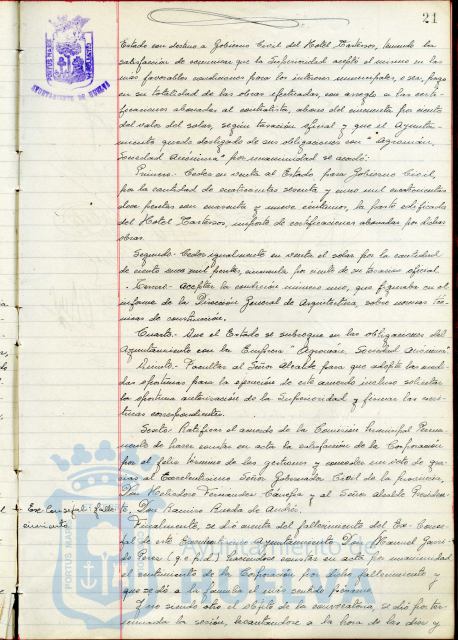 21
PORTUS MARIS
AYUNTAMIENTO DE HUELVA
Estado con destino a Gobierno Civil del Hotel Tartessos, teniendo la
satisfacción de comunicar que la Superioridad aceptó el mismo en las
más favorables condiciones para los intereses municipales, o sea, pago
en su totalidad de las obras efectuadas, con arreglo a las certi-
ficaciones abonadas al contratista, abono del cincuenta por ciento
del valor del solar, según tasación oficial y que el Ayunta-
miento quede desligado de sus obligaciones con "Agromán,
Sociedad Anónima" por unanimidad se acordó:
Primero.- Ceder en venta al Estado para Gobierno Civil,
por la cantidad de cuatrocientas sesenta y una mil cuatrocientas
doce pesetas con cuarenta y nueve céntimos, la parte edificada
del Hotel Tartessos, importe de certificaciones abonadas por dichas
obras.
Segundo.- Ceder igualmente en venta el solar por la cantidad
de ciento mil pesetas, cincuenta por ciento de su tasación oficial.
Tercero.- Aceptar la condición número uno, que figuraba en el
informe de la Dirección General de Arquitectura, sobre normas téc-
nicas de construcción.
Cuarto.- Que el Estado se subrogue en las obligaciones del
Ayuntamiento con la Empresa "Agromán, Sociedad Anónima"
Quinto.- Facultar al Señor Alcalde para que adopte las medi-
das oportunas para la ejecución de este acuerdo incluso solicitar
la oportuna autorización de la Superioridad y firmar las escri-
turas correspondientes.
Sexto.- Ratificar el acuerdo de la Comisión Municipal Perma-
nente de hacer constar en acta la satisfacción de la Corporación
por el feliz término de las gestiones y conceder un voto de gra-
cias al Excelentísimo Señor Gobernador Civil de la provincia,
Don Fernández y al Señor Alcalde Presiden-
te, Don Ramiro Rueda de Andrés.
Ex Concejal: falle-
cimiento
Finalmente, se dió cuenta del fallecimiento del Ex-Conce-
jal de este Excelentísimo Ayuntamiento Don Manuel
Pérez (q.e.p.d) haciéndose constar en acta por unanimidad
el sentimiento de la Corporación por dicho fallecimiento y
que se dé a la familia el más sentido pésame.
Y no siendo otro el objeto de la convocatoria, se dió por ter-
minada la sesión, levantándose a la hora de las diez y
Ayuntamiento de
HUELVA
PORTUS MARIS